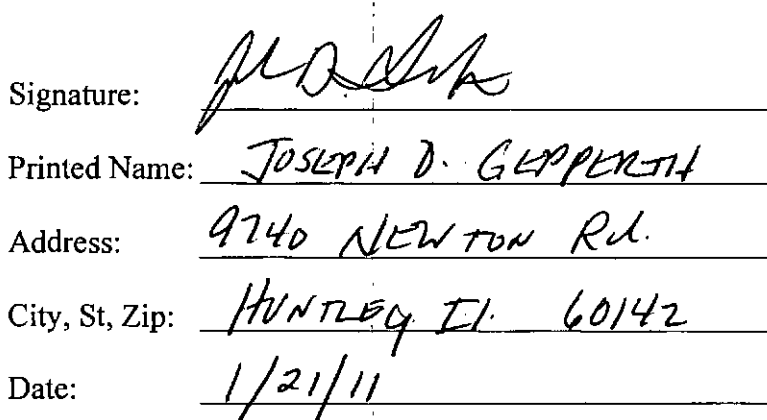 Signature:
Printed Name: JOSEPH D. GEPPERTH
Address: 9740 NEWTON Rd.
City, St, Zip: HUNTLEY Il. 60142
Date: 1/21/11